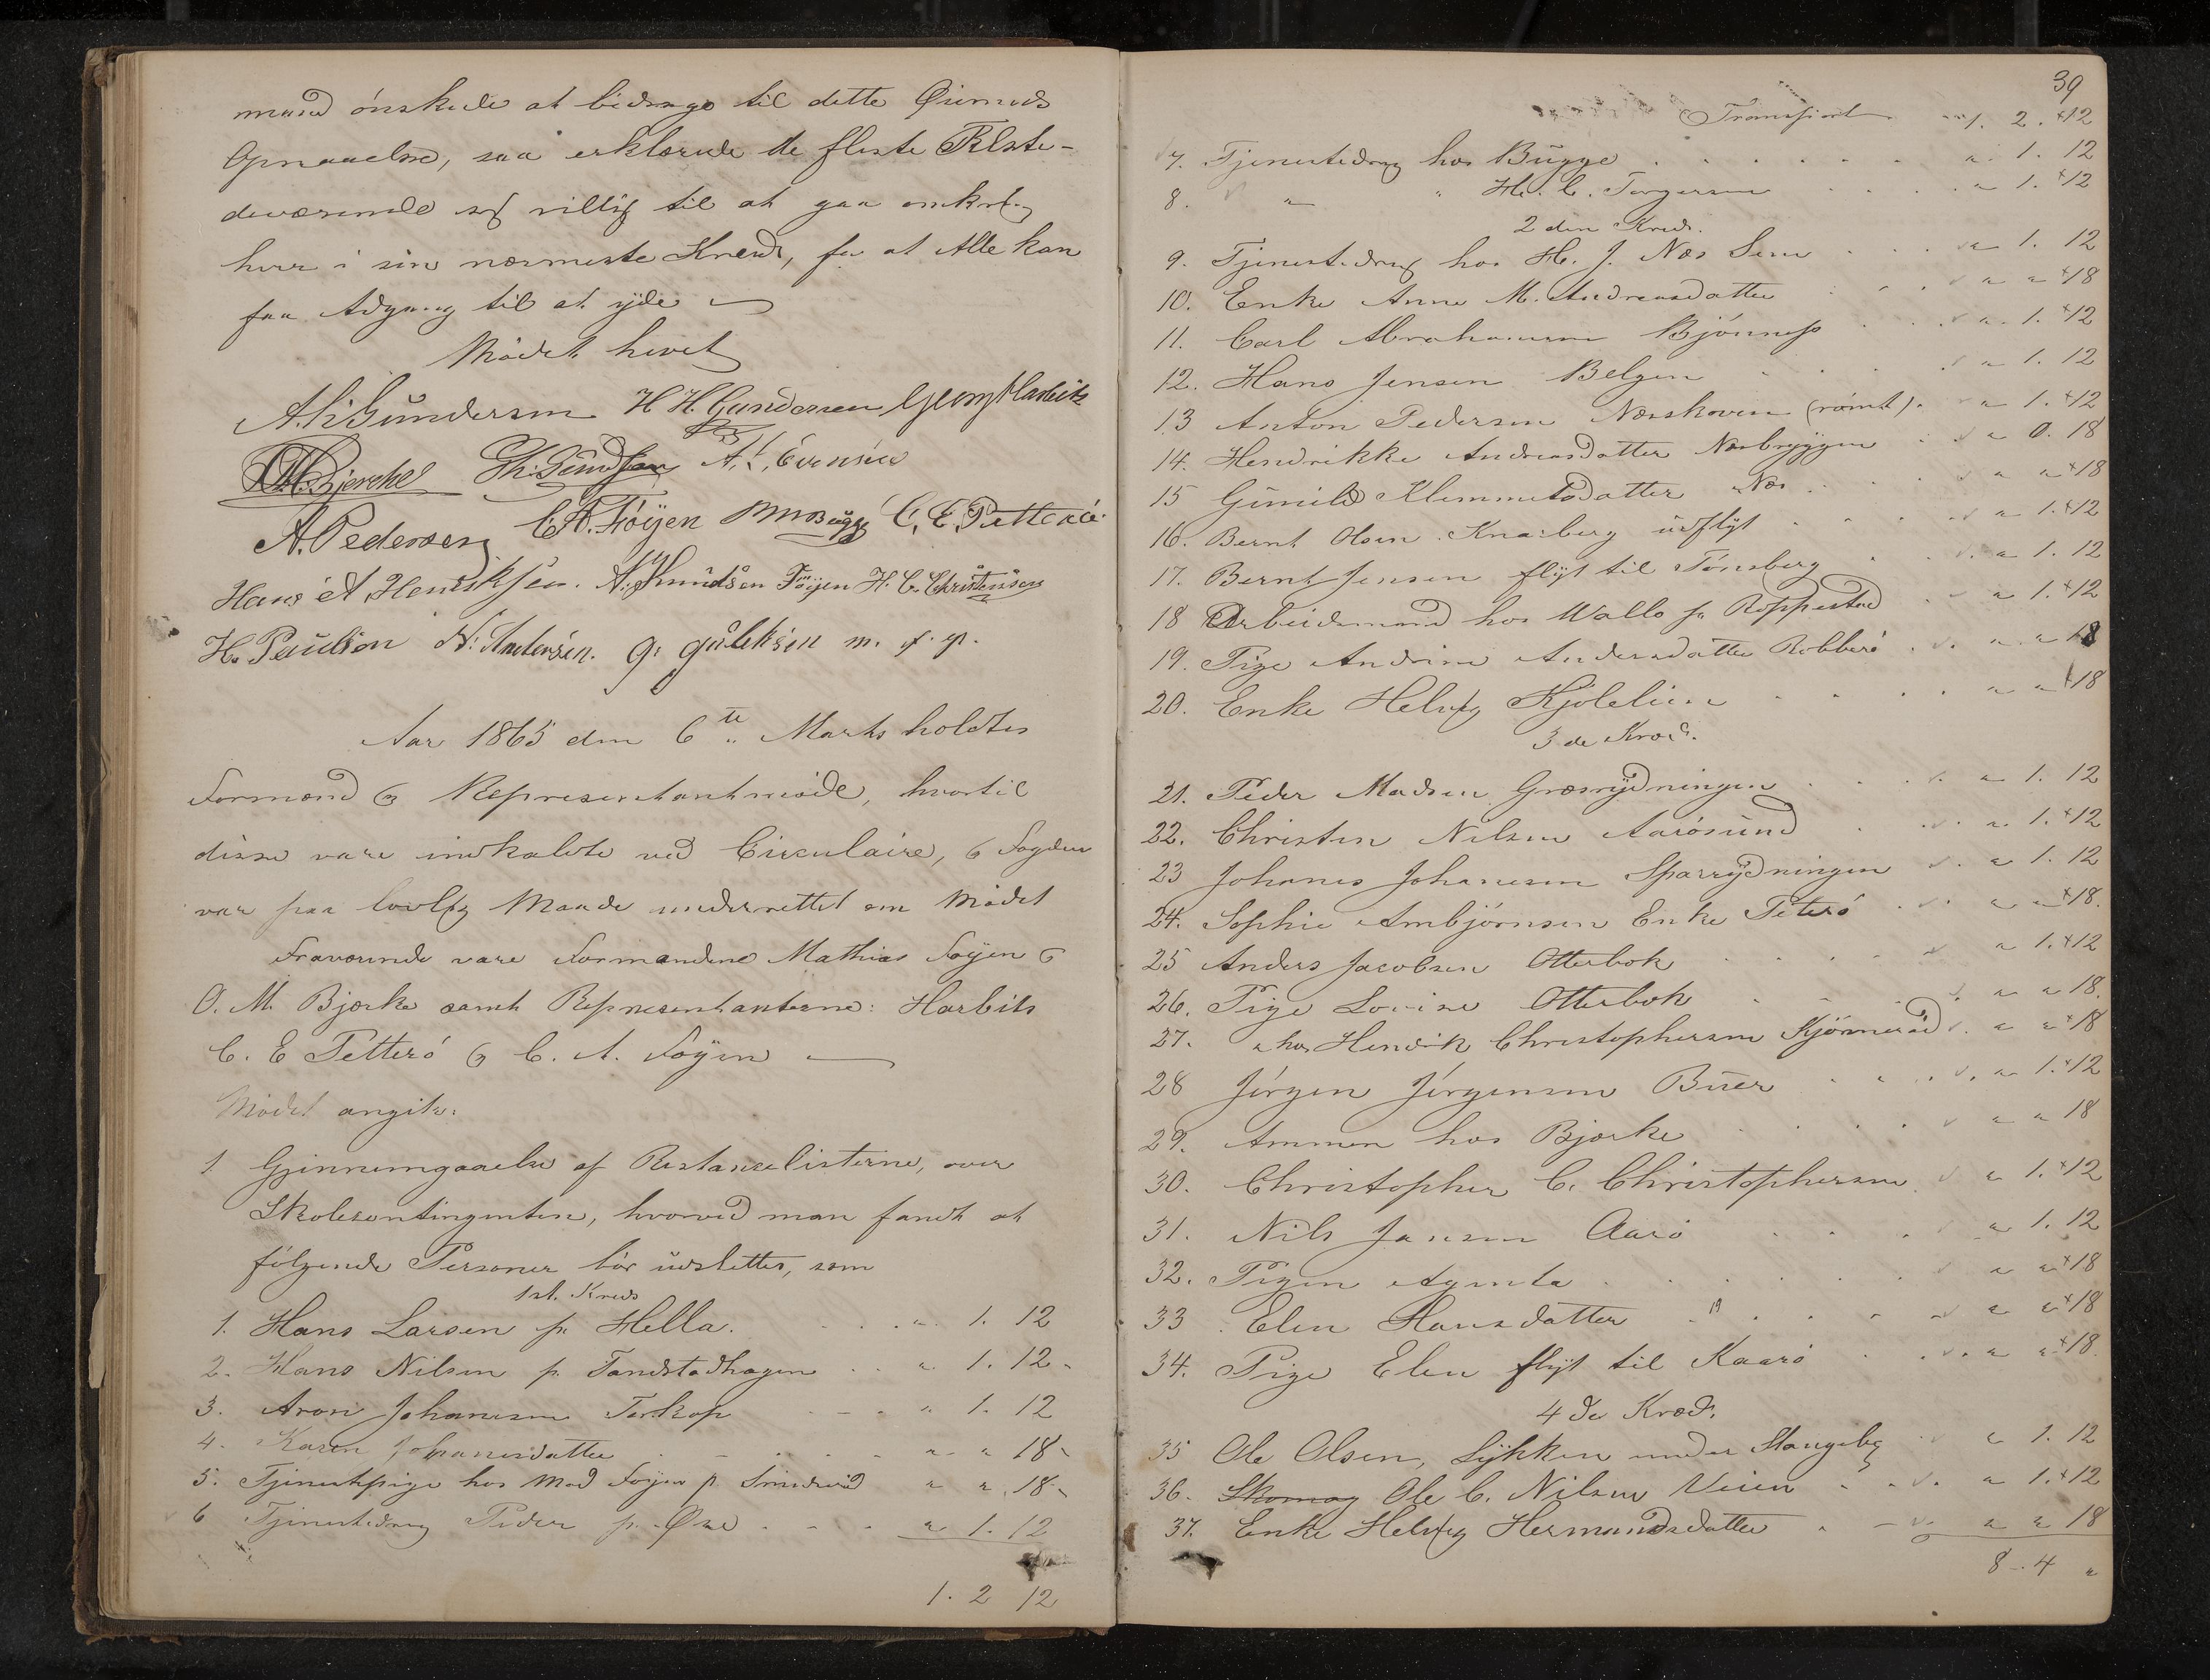 mand ónskede at bidrage til dette Øiemeds
Opnaaelse, saa erklærede de fleste Tilste-
deværende sig villig til at gaa omkring
hver i sin nærmeste Kreds, for at Alle kan
faa Adgang til at yde
Mödet hevet
A. H. Gundersen H H. Gundersen Georg Harbitz
O.M. Bjerche A. L. Evensen
A. Pedersen C. A. Föÿen M M Bugge C. E. Petterøe
Hans A. Hendriksen. A. Amundsen Föyen H. C. Christensen
H. Paulsen N. Andersen. G. Gulliksen m. f. p.
Aar 1865 den 6te Marts holdtes
Formænd og Representantmöde, hvortil
disse vare indkaldte ved Circulaire, og Fogden
var paa lovlig Maade underrettet om Mödet
Fraværende vare Formændene Mathias Foyen og
O. M. Bjerke samt Representanterne: Harbits
C. E Petteró og C. A. Foyen
Mödet angik:
1. Gjennemgaaelse af Restanselisterne, over
Skolecontingenten, hvorved man fandt at
fölgende Personer bör udslettes, som
1st. Kreds
1. Hans Larsen p. Hella. . . . " 1. 12
2. Hans Nilsen p. Tandstadhagen . . " 1. 12
3. Aron Johansen Torkop " 1. 12
4. Karen Johanesdatter " " 18
5. Tjenestpige hos Mad Foyen p. Smidsrød " " 18
6 Tjenestedreng Peder p. Øre " 1. 12
1. 2 12
39
Transport 1. 2. 12
7. Tjenestedreng hos Bugge . . . . " 1. 12
8. " " H. C. Torgersen " 1. 12
2den Kreds.
9. Tjenestedreng hos H. J. Næs Sem " 1. 12
10. Enke Anne M. Andreasdatter " " 18
11. Carl Abrahamsen Bjónnes " 1. 12
12. Hans Jensen Belgen " 1. 12
13 Anton Pedersen Næsskoven (römt). " 1. 12
14. Hendrikke Andreasdatter Næsbryggen " 0. 18
15 Gunild Klemmetsdatter Næs " " 18
16. Bernt Olsen Knarberg udflÿt " 1. 12
17. Bernt Jensen flÿt til Tónsberg " 1. 12
18 Arbeidsmand hos Wallo p. Roppestad " 1. 12
19. Pige Andrine Andersdatter Robberó " " 18
20. Enke Helvig Kjolelien " " 18
3de Kreds.
21. Peder Madsen Græsrÿdningen " 1. 12
22. Christen Nilsen Aarösund " 1. 12
23 Johanes Johanesen Sparrÿdningen " 1. 12
24. Sophie Ambjörnsen Enke Peteró " " 18.
25 Anders Jacobsen Otterbok " 1. 12
26. Pige Lovise Otterbok " " 18.
27. " hos Hendrik Christophersen Kjönnerød " " 18
28 Jörgen Jörgensen Buer " 1. 12
29. Ammen hos Bjerke " " 18
30. Christopher C. Christophersen " 1. 12
31. Nils Jansen Aarö " 1. 12
32. Pigen Agente " " 18
33 Elen Hansdatter " " " 18
34. Pige Elen flÿt til Kaarö " " 18
4de Kreds.
35 Ole Olsen, Lÿkken under Stangeby " 1. 12
36. Skomag Ole C. Nilsen Veien " 1. 12
37. Enke Helvig Hermundsdatter " " 18
8 - 4 "